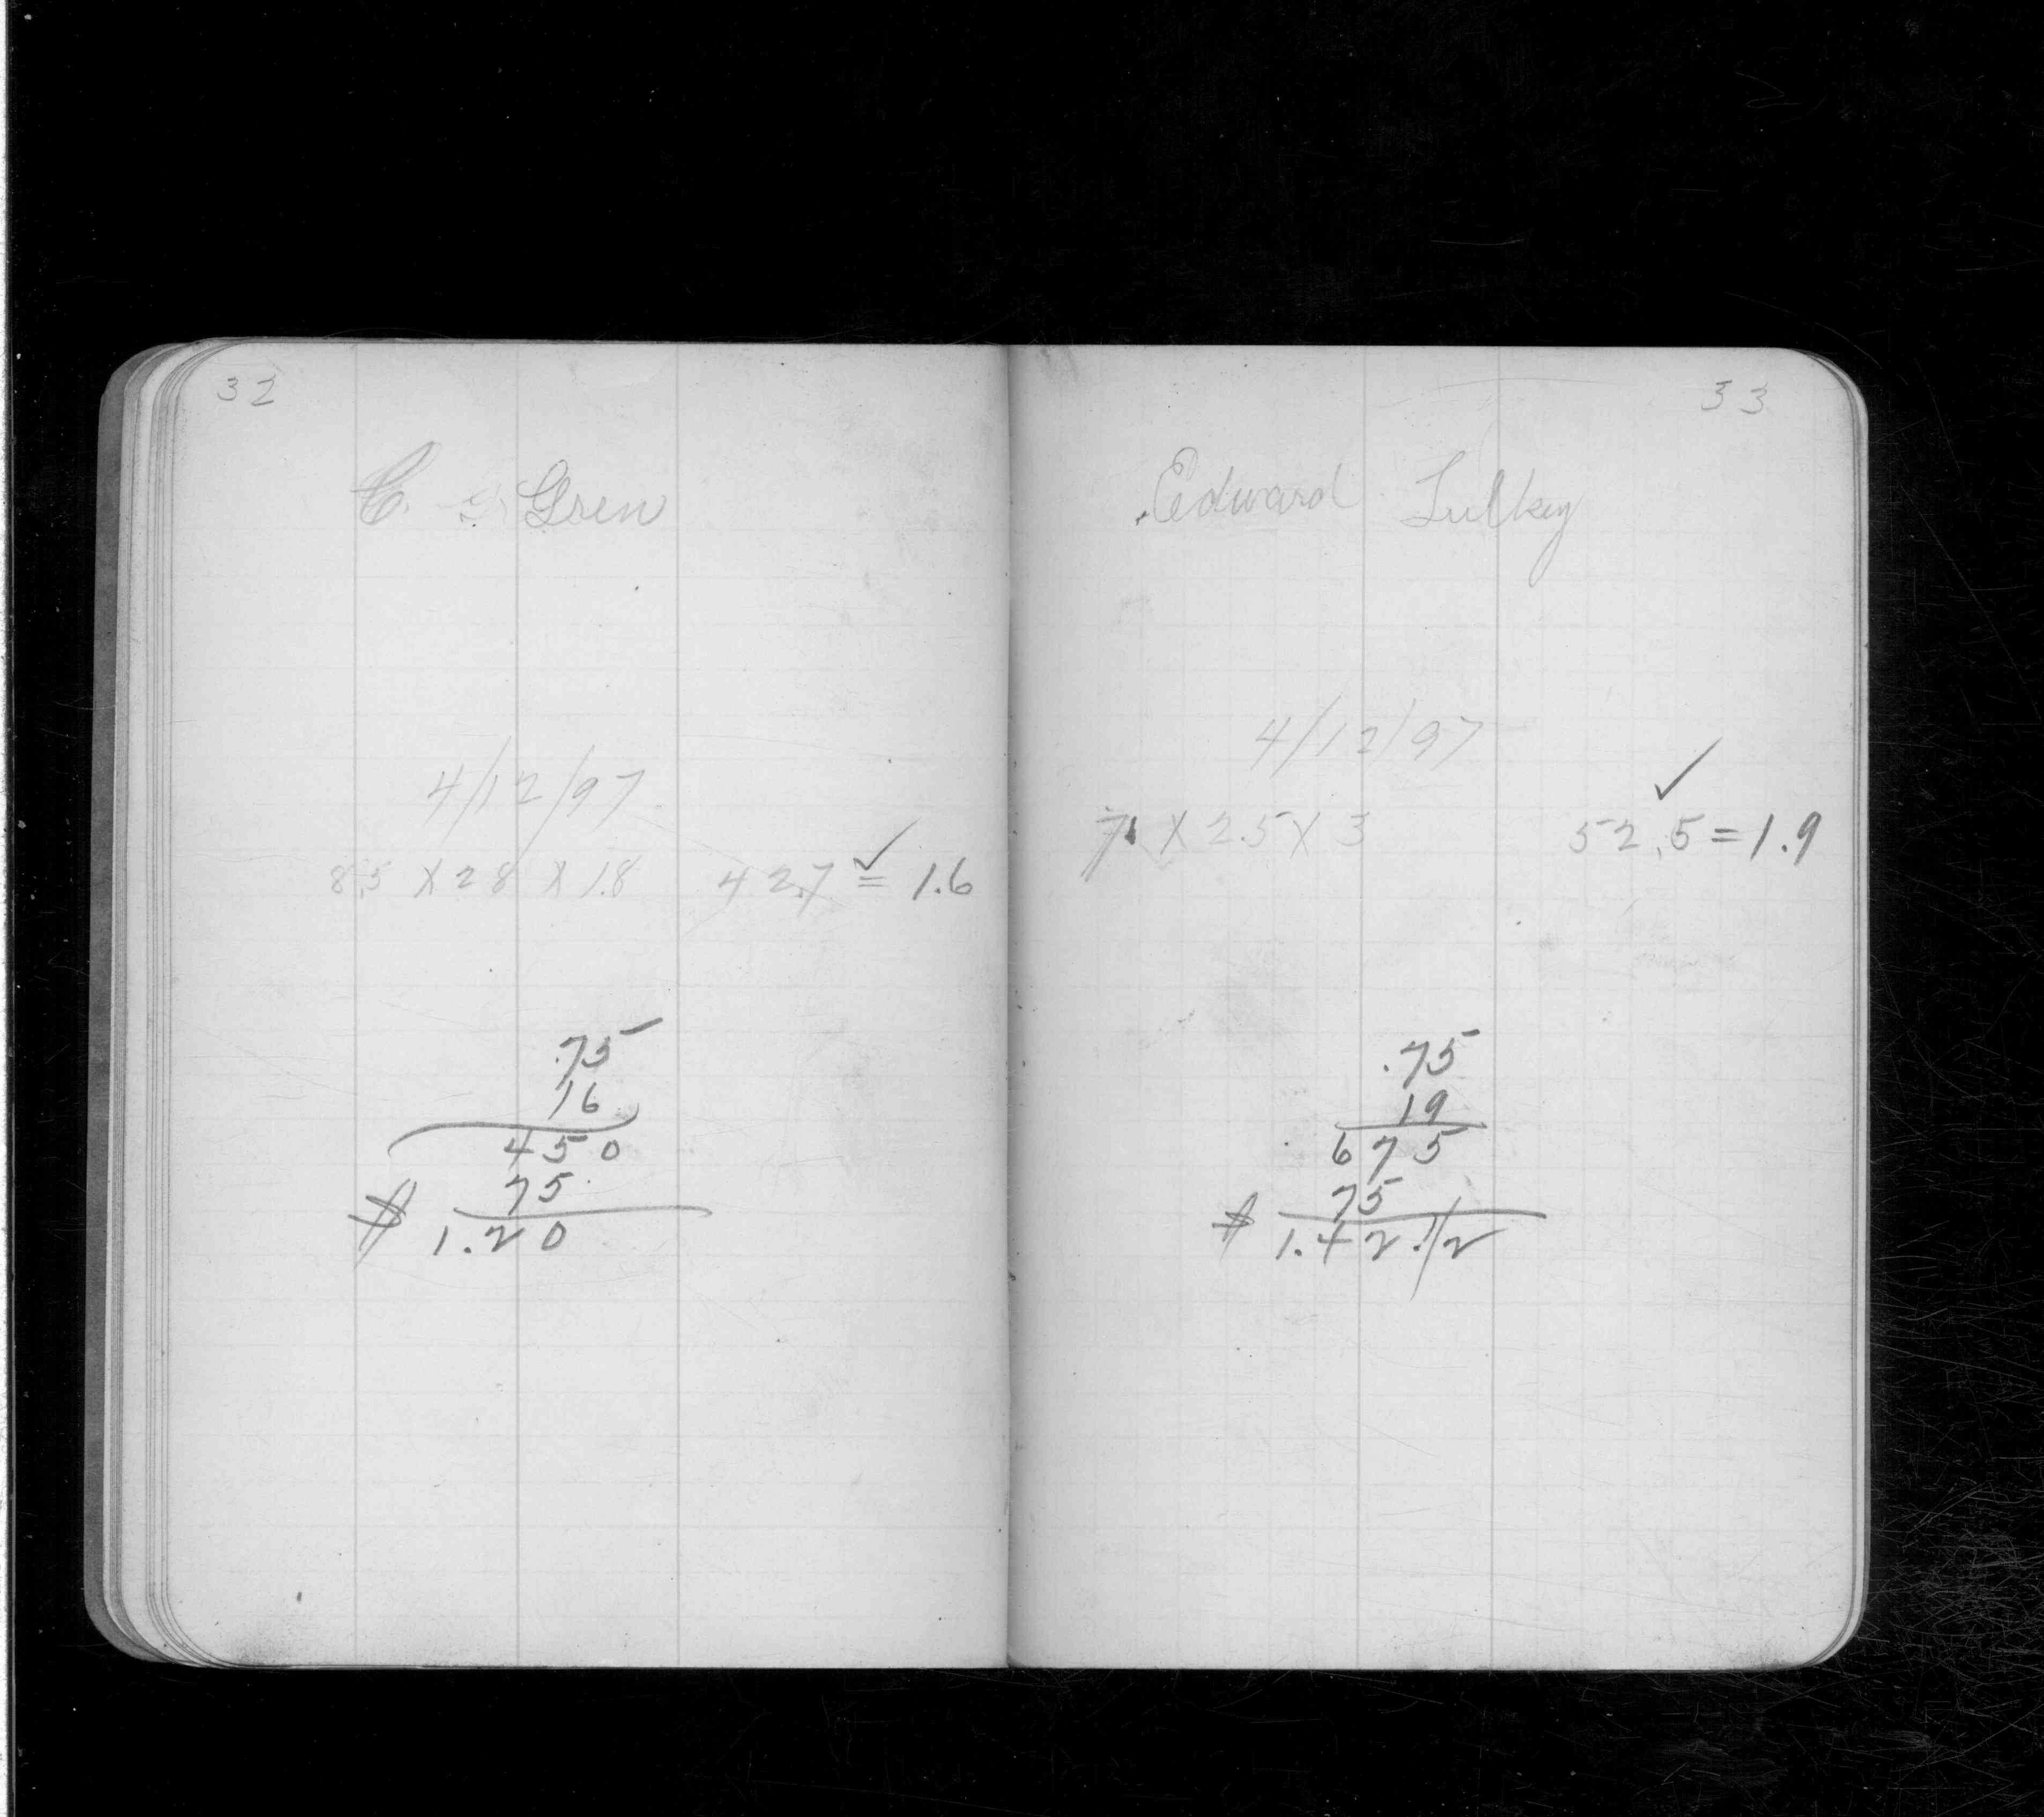 32
C. Gren
4/12/97
8.5 X 2.8 X 1.8 42.7 ✓ = 1.6
.75
16
450
75
$ 1.20
33
Edward
4/12/97
7 X 2.5 X 3 52.5 ✓ = 1.9
.75
19
675
75
$ 1.42 1/2